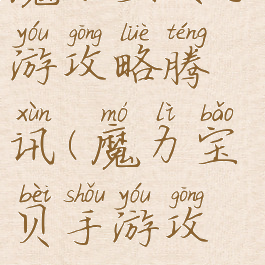 yóu gōng lüè téng
游攻略腾
xùn mó lì bǎo
讯(魔力宝
bèi shǒu yóu gōng
贝手游攻